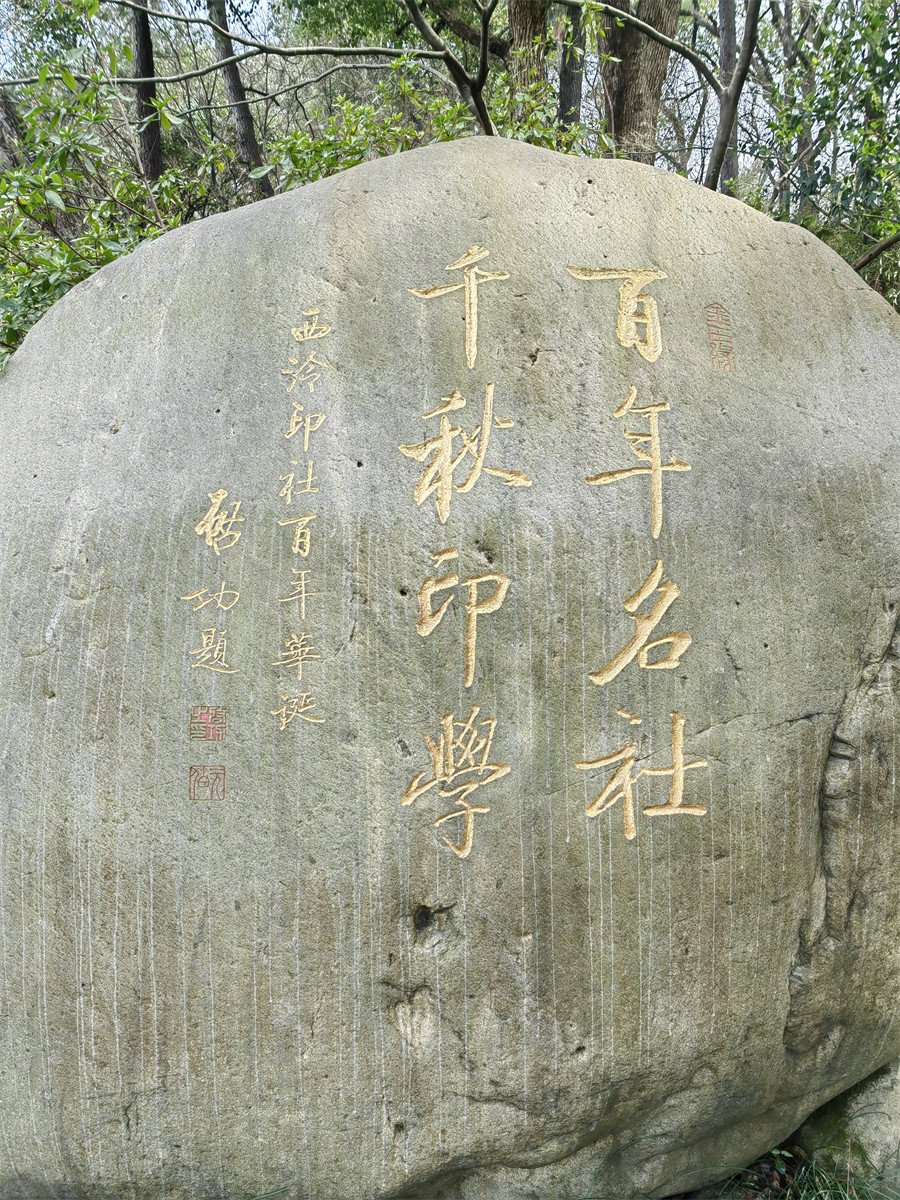 百年名社
千秋印學
西泠印社百年華誕
啓功題